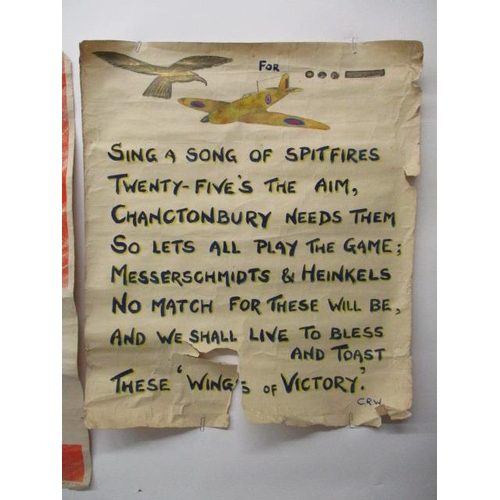 FOR
SING A SONG OF SPITFIRES
TWENTY-FIVE'S THE AIM,
CHANCTONBURY NEEDS THEM
SO LETS ALL PLAY THE GAME;
MESSERSCHMIDTS & HEINKELS
NO MATCH FOR THESE WILL BE,
AND WE SHALL LIVE TO BLESS
AND TOAST
THESE 'WINGS OF VICTORY.'
C.R.W.